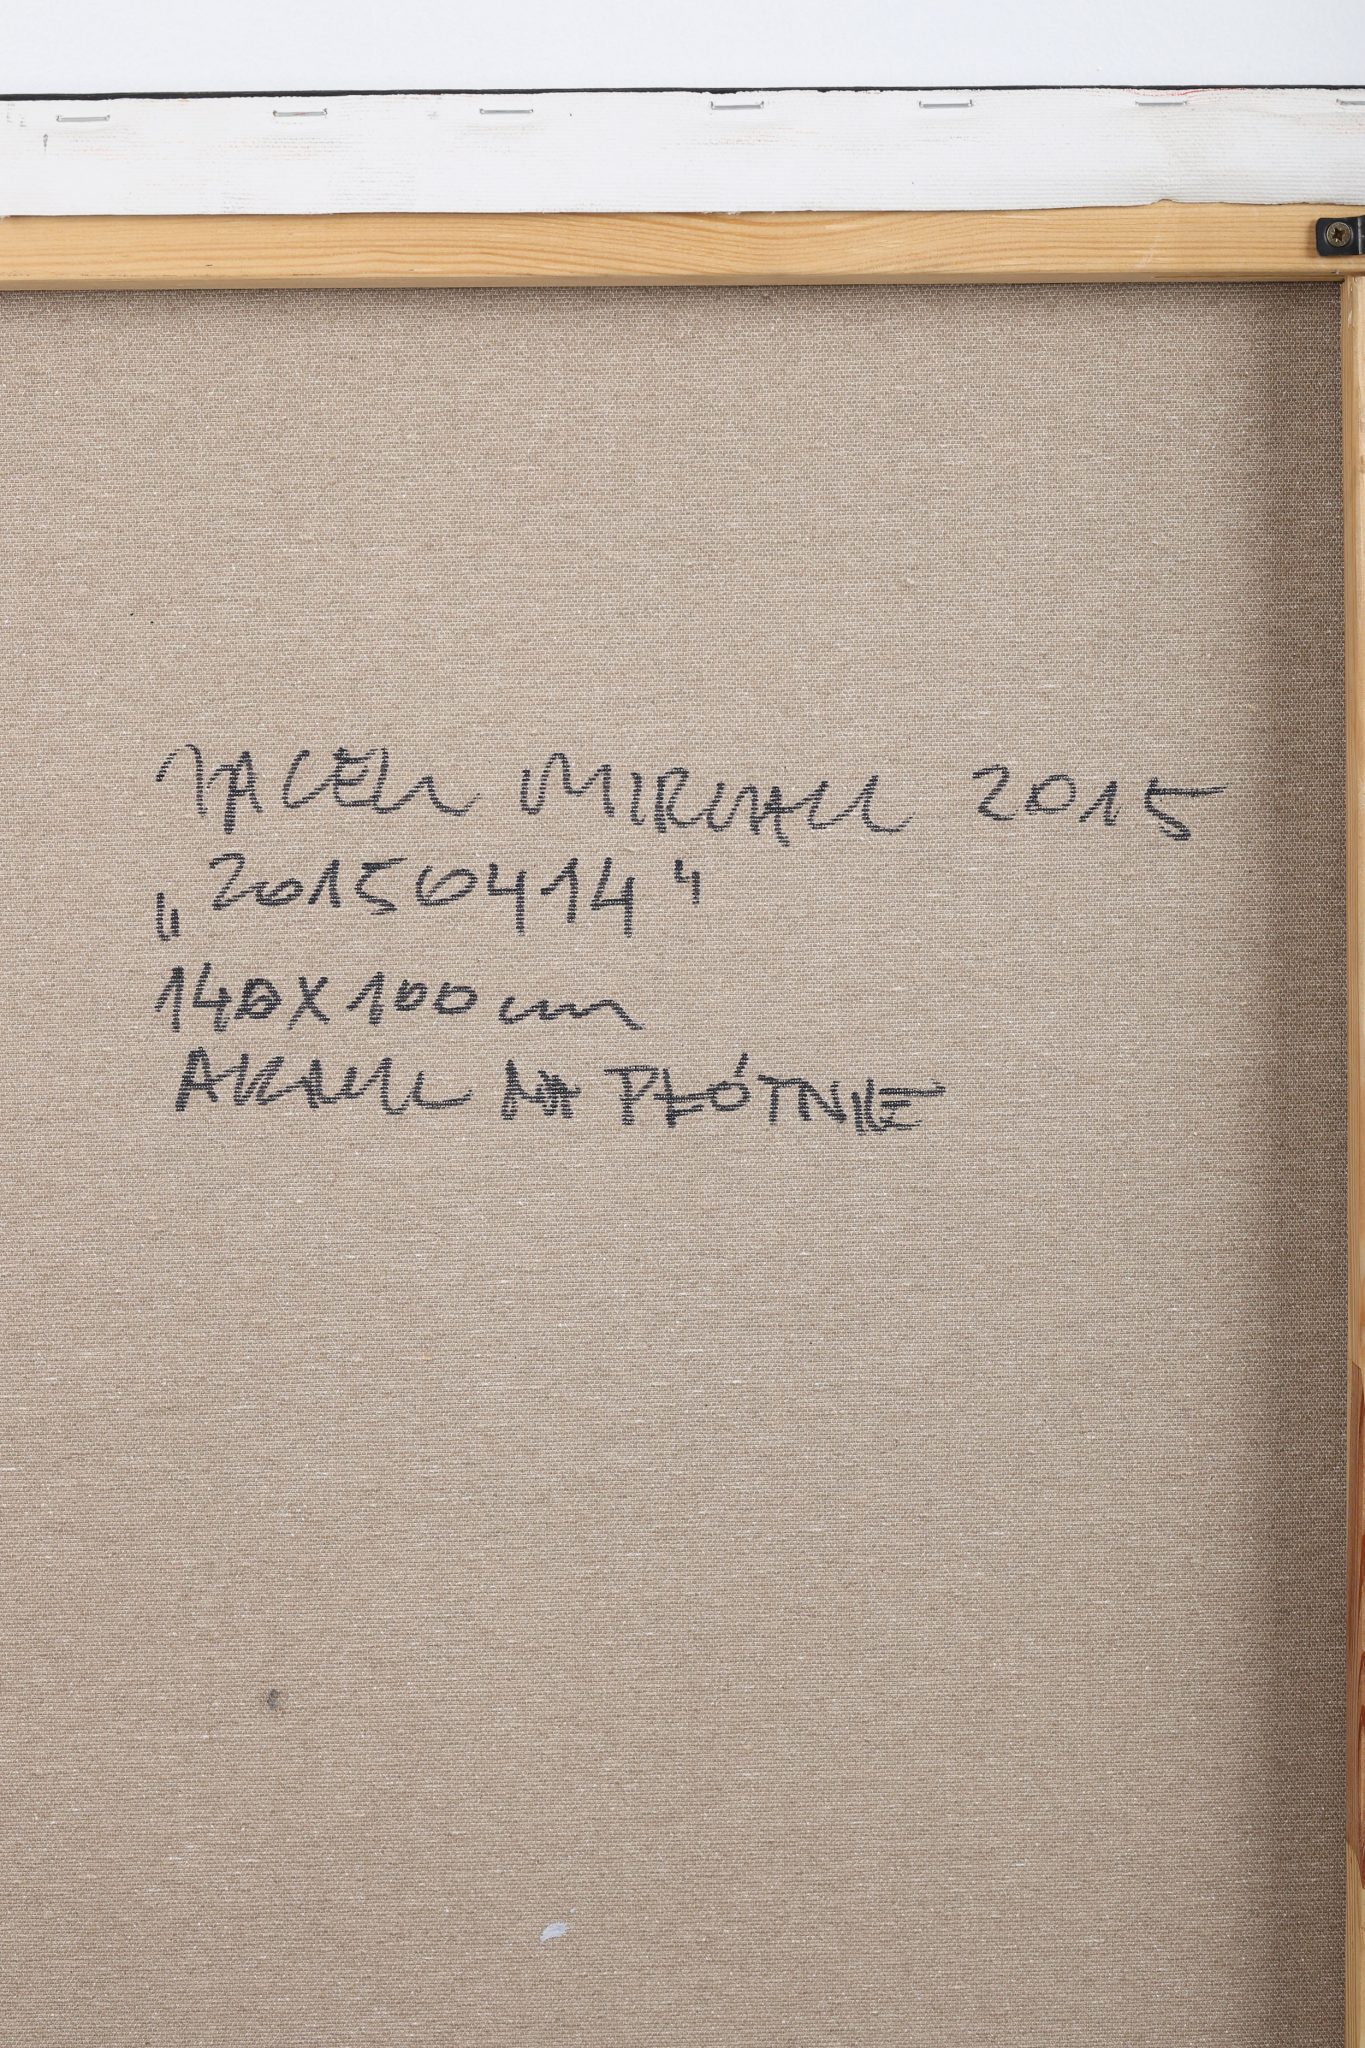 JACEK MIRCZAK 2015
„20150414"
140X100cm
AKRYL NA PŁÓTNIE